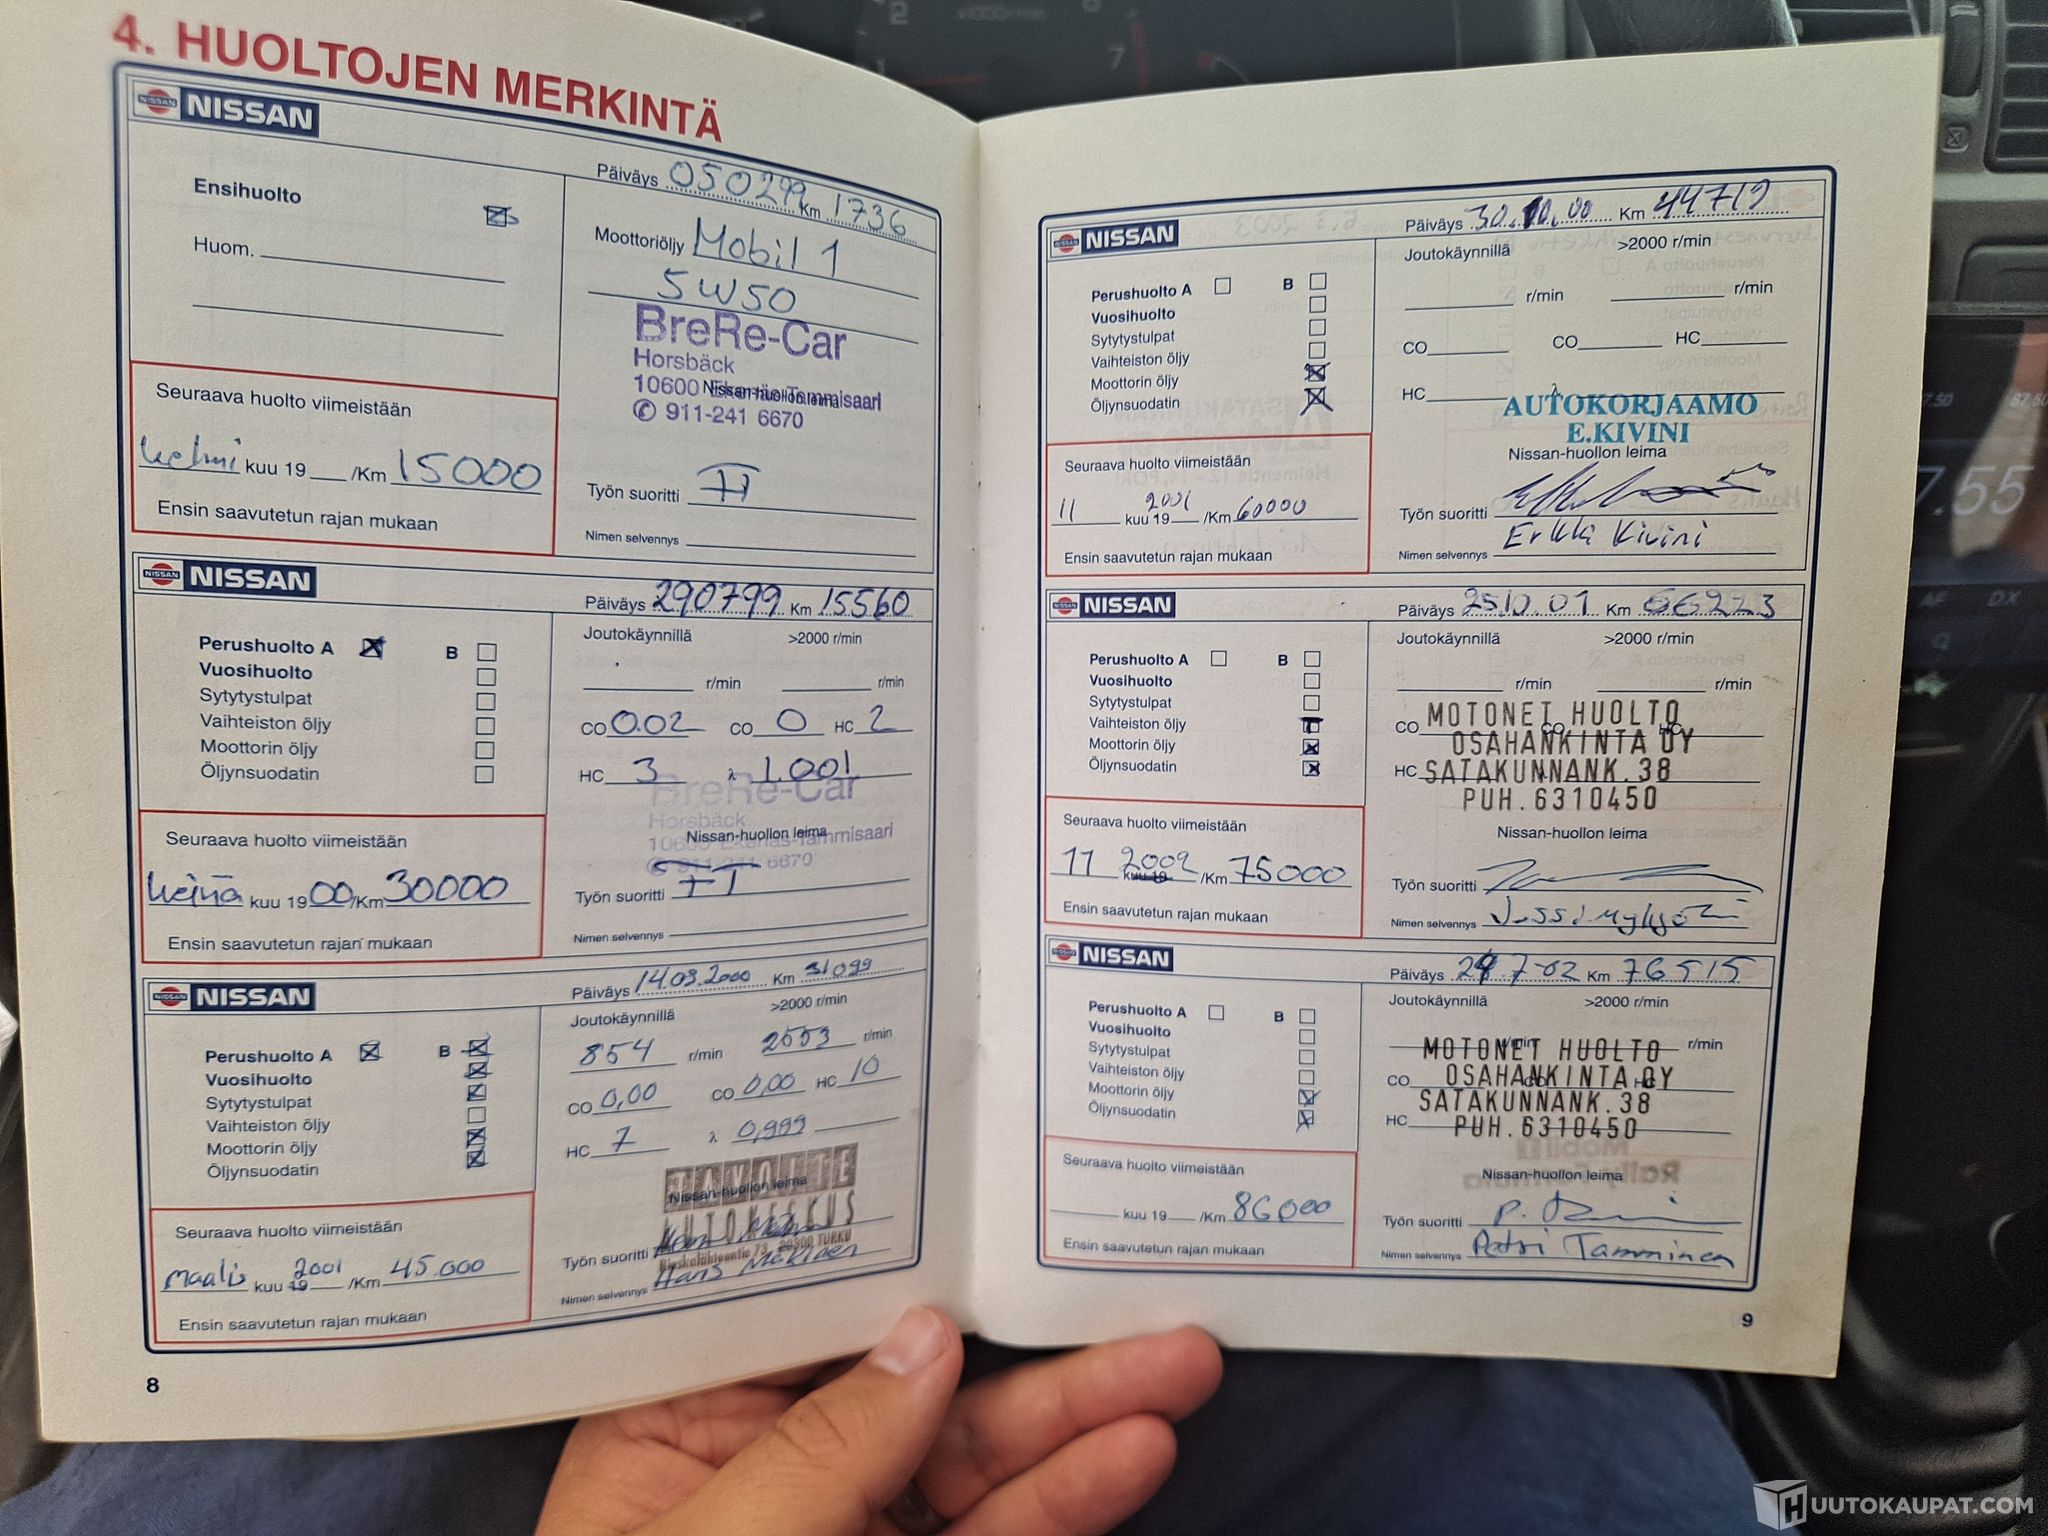 4. HUOLTOJEN MERKINTÄ
NISSAN NISSAN
Päiväys 050299 Km 1736
Ensihuolto
Huom.
Moottoriöljy Mobil 1
5W50
BreRe-Car
Horsbäck
10600 Ekenäs-Tammisaari
Nissan-huollon leima
✆ 911-241 6670
Seuraava huolto viimeistään
helmi kuu 19 /Km 15000
Ensin saavutetun rajan mukaan
Työn suoritti
Nimen selvennys
NISSAN NISSAN
Päiväys 290799 Km 15560
Perushuolto A B
Vuosihuolto
Sytytystulpat
Vaihteiston öljy
Moottorin öljy
Öljynsuodatin
Joutokäynnillä >2000 r/min
r/min r/min
CO 0.02 CO 0 HC 2
HC 3 λ 1.001
BreRe-Car
Horsbäck
Nissan-huollon leima
10600 Ekenäs-Tammisaari
✆ 911-241 6670
Seuraava huolto viimeistään
Heinä kuu 19 00 /Km 30000
Ensin saavutetun rajan mukaan
Työn suoritti
Nimen selvennys
NISSAN NISSAN
Päiväys 14.03.2000 Km 31099
Perushuolto A B
Vuosihuolto
Sytytystulpat
Vaihteiston öljy
Moottorin öljy
Öljynsuodatin
Joutokäynnillä >2000 r/min
854 r/min 2553 r/min
CO 0,00 CO 0,00 HC 10
HC 7 λ 0,999
Nissan-huollon leima
AUTOKESKUS
73, 20300 TURKU
Seuraava huolto viimeistään
maalis kuu 19 2001 /Km 45.000
Ensin saavutetun rajan mukaan
Työn suoritti
Nimen selvennys
8
NISSAN NISSAN
Päiväys 30.10.00 Km 44719
Perushuolto A B
Vuosihuolto
Sytytystulpat
Vaihteiston öljy
Moottorin öljy
Öljynsuodatin
Joutokäynnillä >2000 r/min
r/min r/min
CO CO HC
HC λ
AUTOKORJAAMO
E.KIVINI
Nissan-huollon leima
Seuraava huolto viimeistään
11 kuu 19 2001 /Km 60000
Ensin saavutetun rajan mukaan
Työn suoritti
Nimen selvennys Erkki Kivini
NISSAN NISSAN
Päiväys 25.10.01 Km 66223
Perushuolto A B
Vuosihuolto
Sytytystulpat
Vaihteiston öljy
Moottorin öljy
Öljynsuodatin
Joutokäynnillä >2000 r/min
r/min r/min
CO CO HC
HC
MOTONET HUOLTO
OSAHANKINTA OY
SATAKUNNANK.38
PUH.6310450
Nissan-huollon leima
Seuraava huolto viimeistään
11 kuu 19 2002 /Km 75000
Ensin saavutetun rajan mukaan
Työn suoritti
Nimen selvennys
NISSAN NISSAN
Päiväys 7-02 Km 76515
Perushuolto A B
Vuosihuolto
Sytytystulpat
Vaihteiston öljy
Moottorin öljy
Öljynsuodatin
Joutokäynnillä >2000 r/min
r/min r/min
CO CO HC
HC
MOTONET HUOLTO
OSAHANKINTA OY
SATAKUNNANK.38
PUH.6310450
Nissan-huollon leima
Seuraava huolto viimeistään
kuu 19 /Km 86000
Ensin saavutetun rajan mukaan
Työn suoritti
Nimen selvennys Petri Tamminen
9
HUUTOKAUPAT.COM